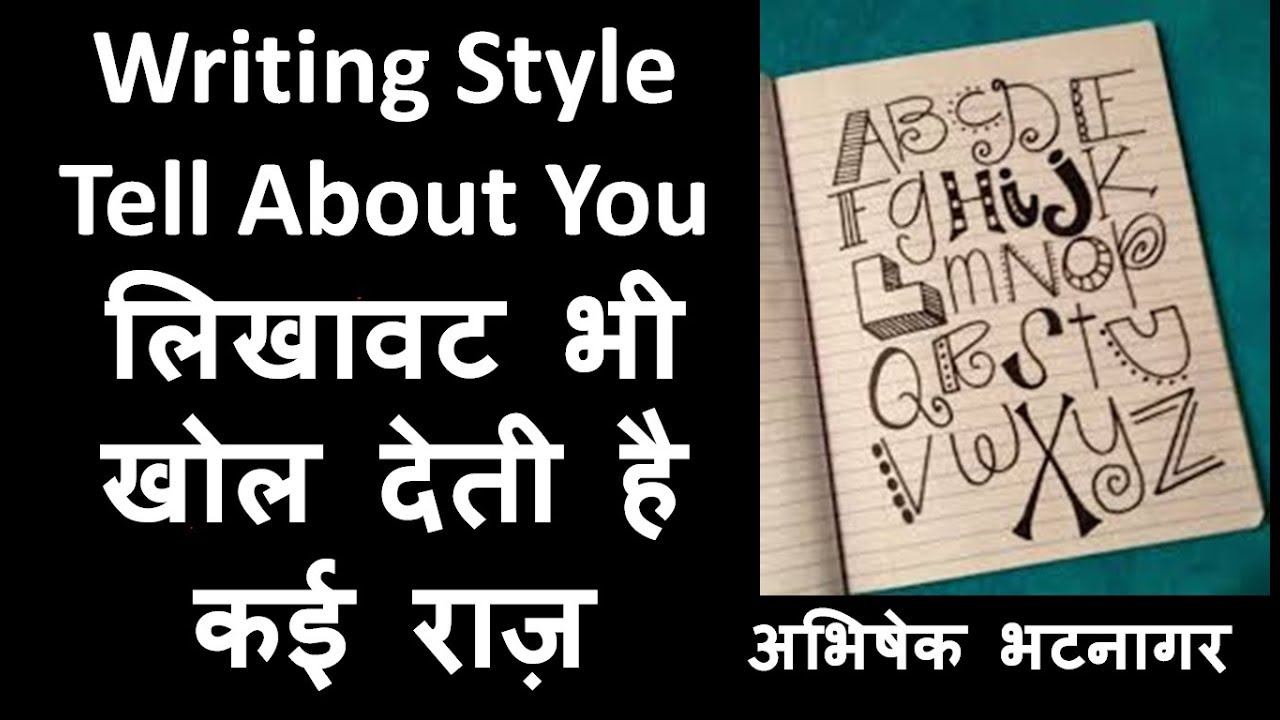 Writing Style
Tell About You
लिखावट भी
खोल देती है
कई राज़
ABCDE
FgHijK
LmNOp
QRSTU
VWXyZ
अभिषेक भटनागर